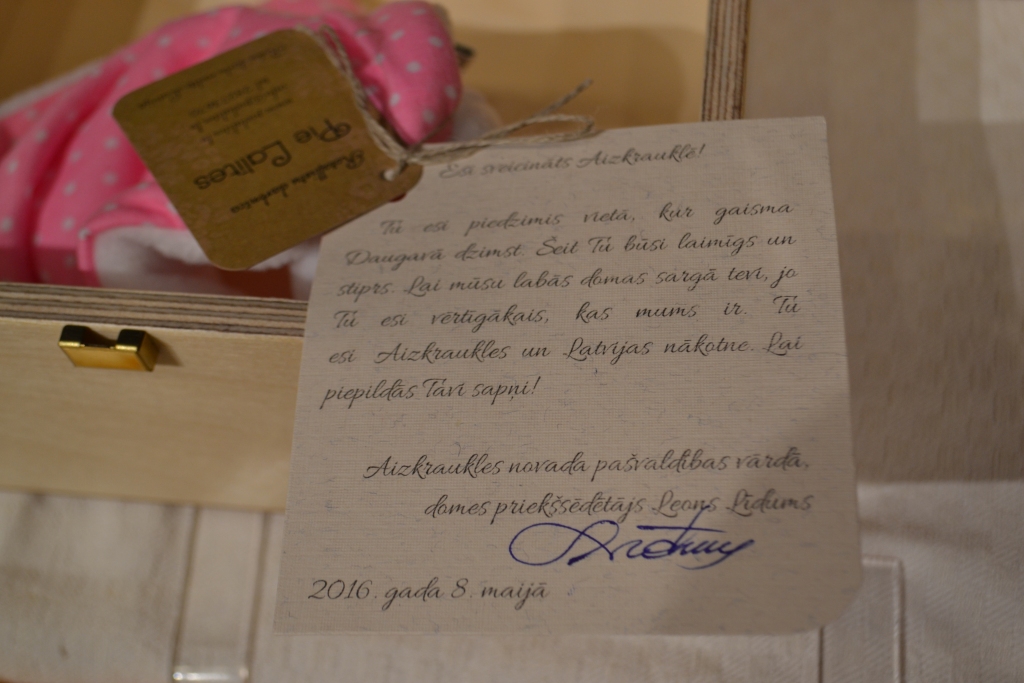 Pie Lalites
Esi sveicināts Aizkrauklē!
Tu esi piedzimis vietā, kur gaisma
Daugavā dzimst. Šeit Tu būsi laimīgs un
stiprs. Lai mūsu labās domas sargā tevi, jo
Tu esi vērtīgākais, kas mums ir. Tu
esi Aizkraukles un Latvijas nākotne. Lai
piepildās Tavi sapņi!
Aizkraukles novada pašvaldības vārdā,
domes priekšsēdētājs Leons Līdums
2016. gada 8. maijā